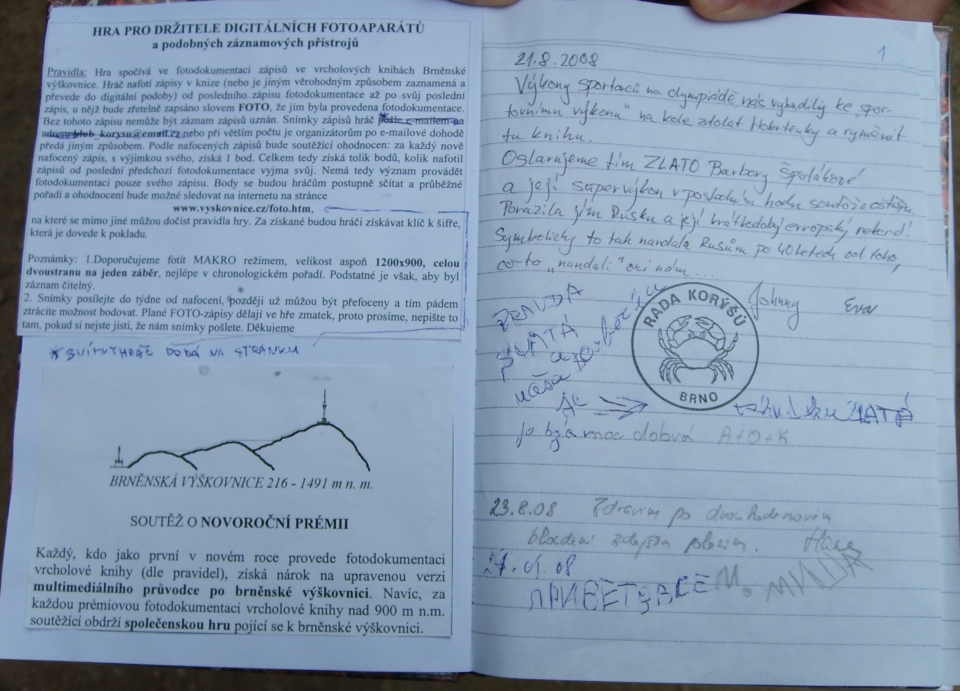 HRA PRO DRŽITELE DIGITÁLNÍCH FOTOAPARÁTŮ
a podobných záznamových přístrojů
Pravidla: Hra spočívá ve fotodokumentaci zápisů ve vrcholových knihách Brněnské
výškovnice. Hráč nafotí zápisy v knize (nebo je jiným věrohodným způsobem zaznamená a
převede do digitální podoby) od posledního zápisu fotodokumentace až po svůj poslední
zápis, u nějž bude zřetelně zapsáno slovem FOTO, že jím byla provedena fotodokumentace.
Bez tohoto zápisu nemůže být záznam zápisů uznán. Snímky zápisů hráč pošle e-mailem na
adresu klub_korysu@email.cz nebo při větším počtu je organizátorům po e-mailové dohodě
předá jiným způsobem. Podle nafocených zápisů bude soutěžící ohodnocen: za každý nově
nafocený zápis, s výjimkou svého, získá 1 bod. Celkem tedy získá tolik bodů, kolik nafotil
zápisů od poslední předchozí fotodokumentace vyjma svojí. Nemá tedy význam provádět
fotodokumentaci pouze svého zápisu. Body se budou hráčům postupně sčítat a průběžné
pořadí a ohodnocení bude možné sledovat na internetu na stránce
www.vyskovnice.cz/foto.htm,
na které se mimo jiné můžou dočíst pravidla hry. Za získané budou hráči získávat klíč k šifře,
která je dovede k pokladu.
Poznámky: 1.Doporučujeme fotit MAKRO režimem, velikost aspoň 1200x900, celou
dvoustranu na jeden záběr, nejlépe v chronologickém pořadí. Podstatné je však, aby byl
záznam čitelný.
2. Snímky posílejte do týdne od nafocení, později už můžou být přefoceny a tím pádem
ztrácíte možnost bodovat. Plané FOTO-zápisy dělají ve hře zmatek, proto prosíme, nepište to
tam, pokud si nejste jisti, že nám snímky pošlete. Děkujeme
* SNÍMKY HRÁČ DODÁ NA STRÁNKU
BRNĚNSKÁ VÝŠKOVNICE 216 - 1491 m n. m.
SOUTĚŽ O NOVOROČNÍ PRÉMII
Každý, kdo jako první v novém roce provede fotodokumentaci
vrcholové knihy (dle pravidel), získá nárok na upravenou verzi
multimediálního průvodce po brněnské výškovnici. Navíc, za
každou prémiovou fotodokumentaci vrcholové knihy nad 900 m n.m.
soutěžící obdrží společenskou hru pojící se k brněnské výškovnici.
1
21.8.2008
Výkony sportovců na olympiádě nás vyhodily ke spor-
tovnímu výkonu na kole zdolat Hobrtenky a vyměnit
tu knihu.
Oslavujeme tím ZLATO Barbory Špotákové
a její supervýkon v posledním hodu soutěže oštěpu.
Porazila jím Rusku a její krátkodobý evropský rekord!
Symbolicky to tak nandala Rusům po 40 letech od toho,
co to "nandali" oni nám...
Johnny Eva
PRAVDA
SVATÁ
naša
RADA KORÝŠŮ
BRNO
ZLATÁ
je dobrá A+O+K
23.8.08 Zdravím po dvouhodinovém
bloudění zdejším polesím.
08
ПРИВЕТ ВСЕМ. МИША